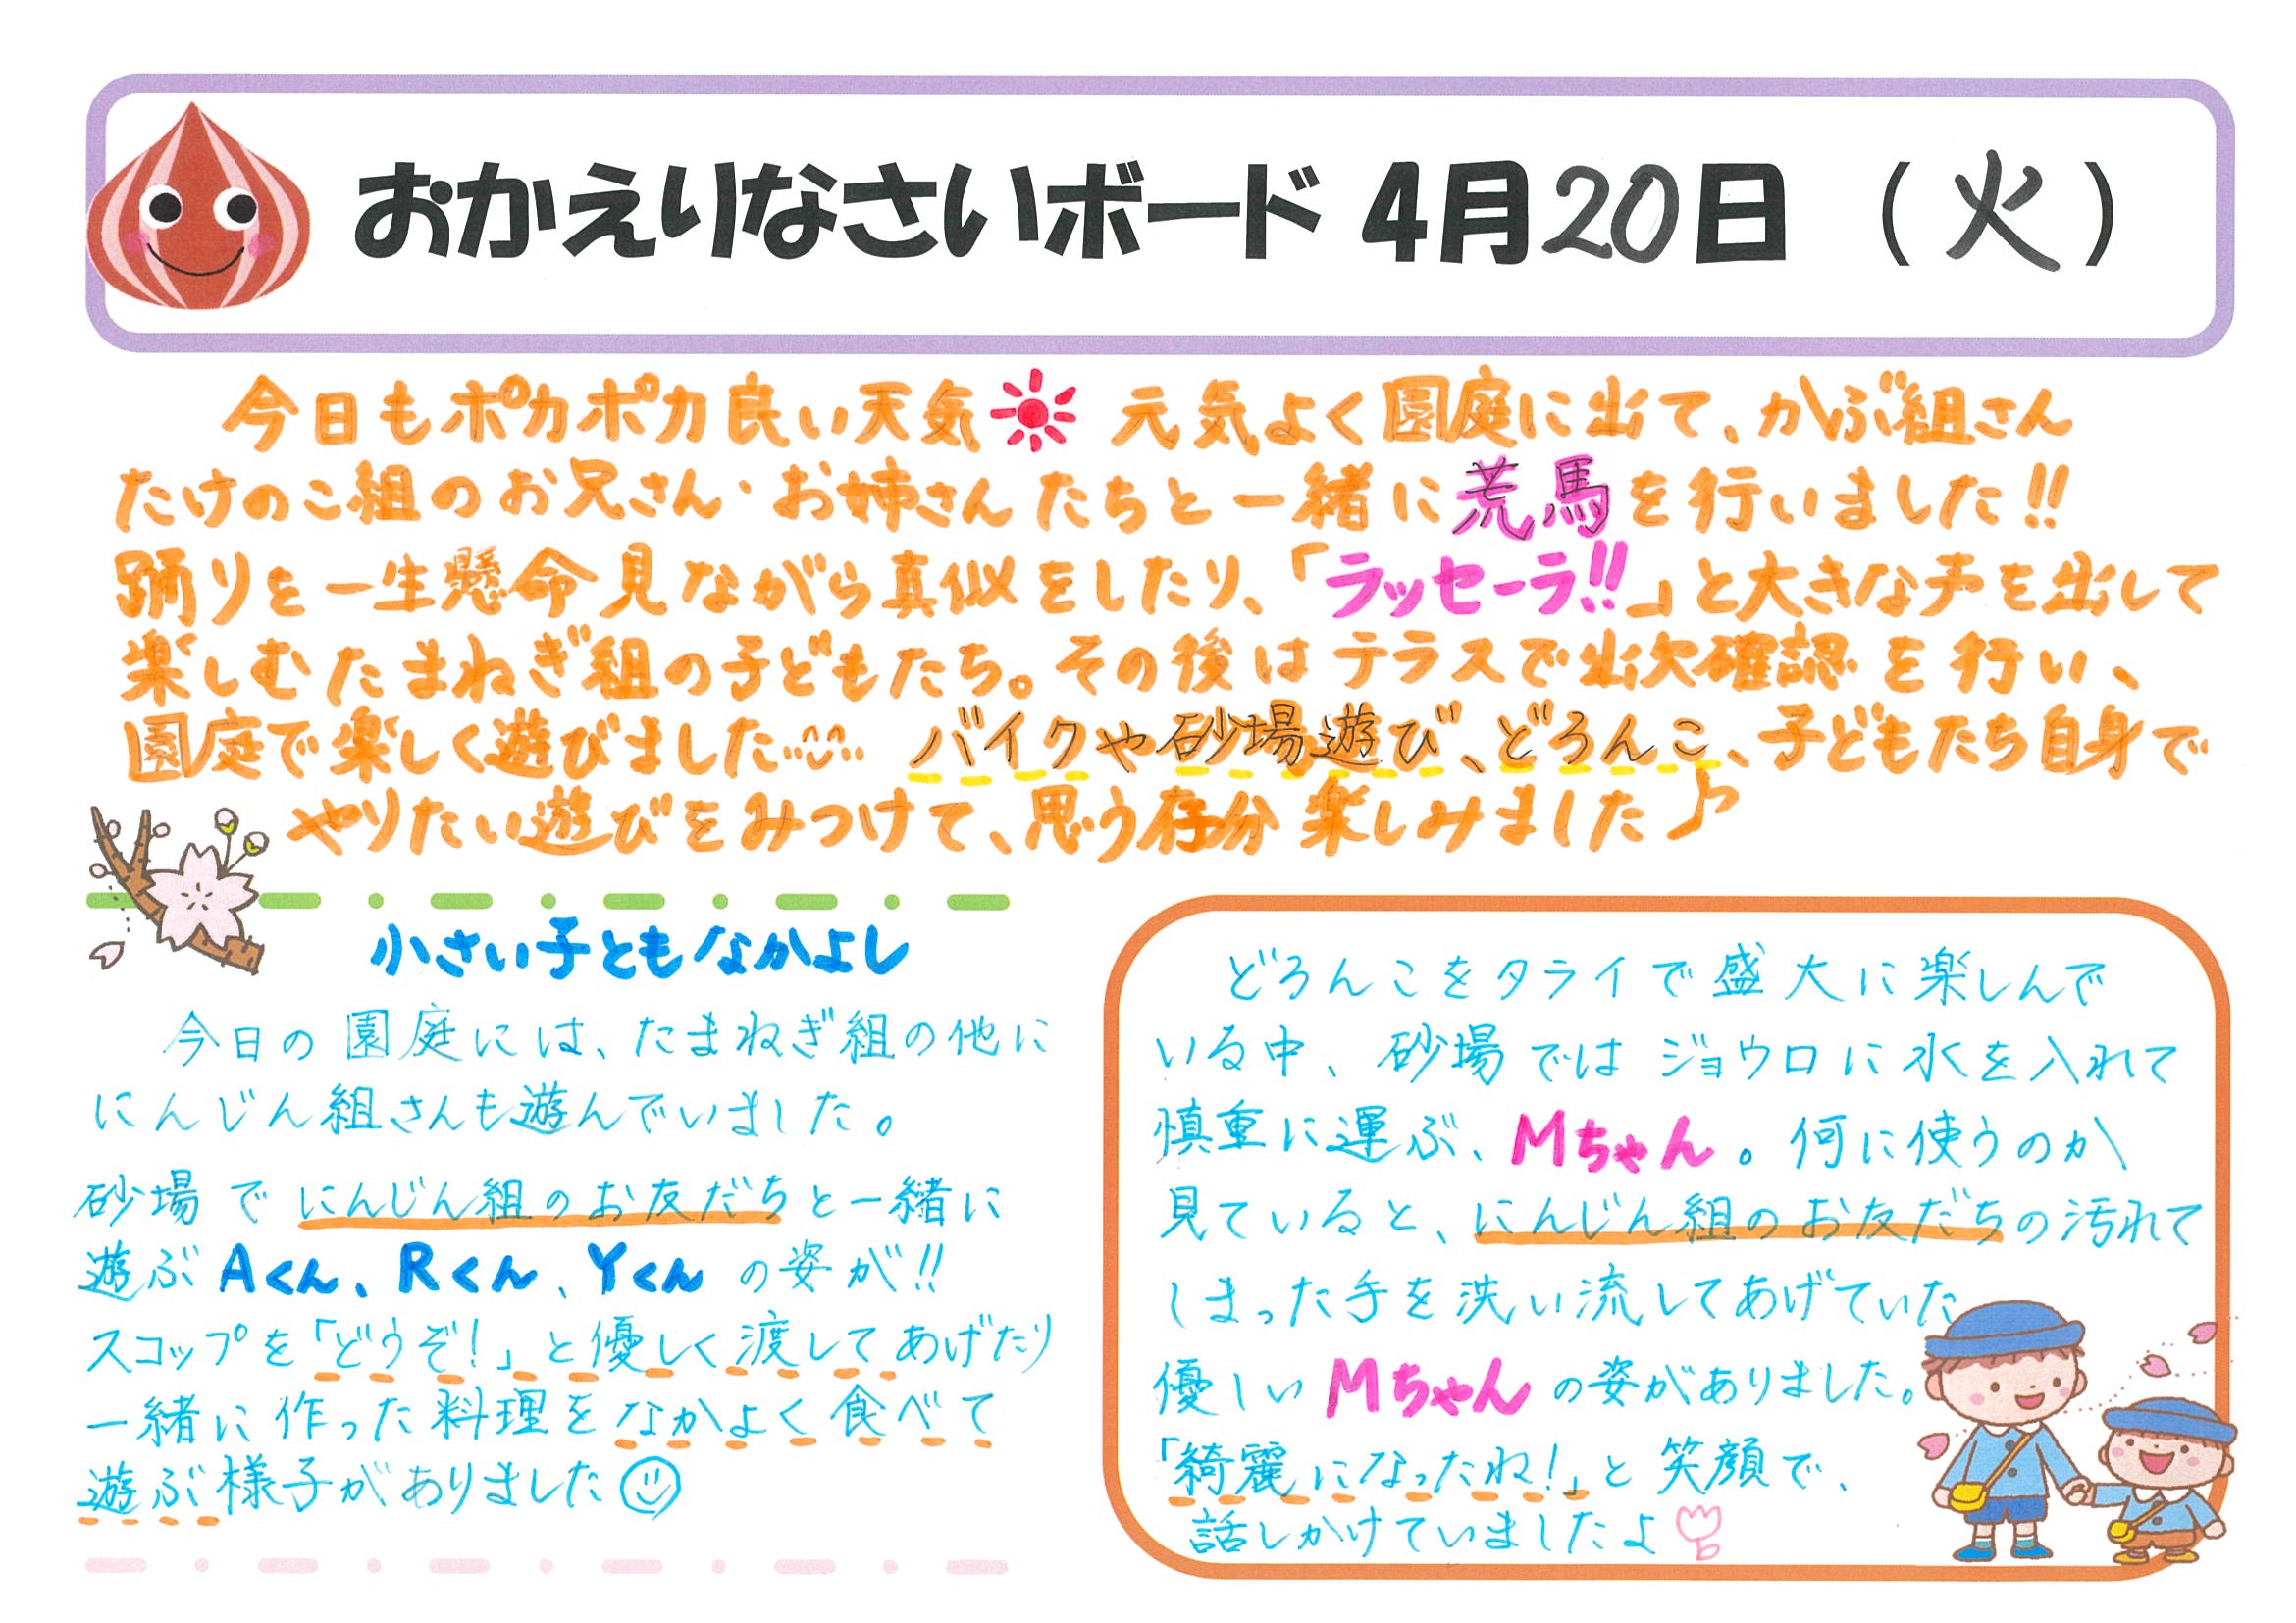 おかえりなさいボード 4月20日 (火)
今日もポカポカ良い天気 元気よく園庭に出て、かぶ組さん
たけのこ組のお兄さん・お姉さんたちと一緒に荒馬を行いました!!
踊りを一生懸命見ながら真似をしたり、「ラッセーラ!!」と大きな声を出して
楽しむたまねぎ組の子どもたち。その後はテラスで出欠確認を行い、
園庭で楽しく遊びました バイクや砂場遊び、どろんこ、子どもたち自身で
やりたい遊びをみつけて、思う存分楽しみました♪
小さい子ともなかよし
今日の園庭には、たまねぎ組の他に
にんじん組さんも遊んでいました。
砂場でにんじん組のお友だちと一緒に
遊ぶAくん、Rくん、Yくんの姿が!!
スコップを「どうぞ!」と優しく渡してあげたり
一緒に作った料理をなかよく食べて
遊ぶ様子がありました
どろんこをタライで盛大に楽しんで
いる中、砂場ではジョウロに水を入れて
慎重に運ぶ、Mちゃん。何に使うのか
見ていると、にんじん組のお友だちの汚れて
しまった手を洗い流してあげていた
優しいMちゃんの姿がありました。
「綺麗になったね!」と笑顔で、
話しかけていましたよ